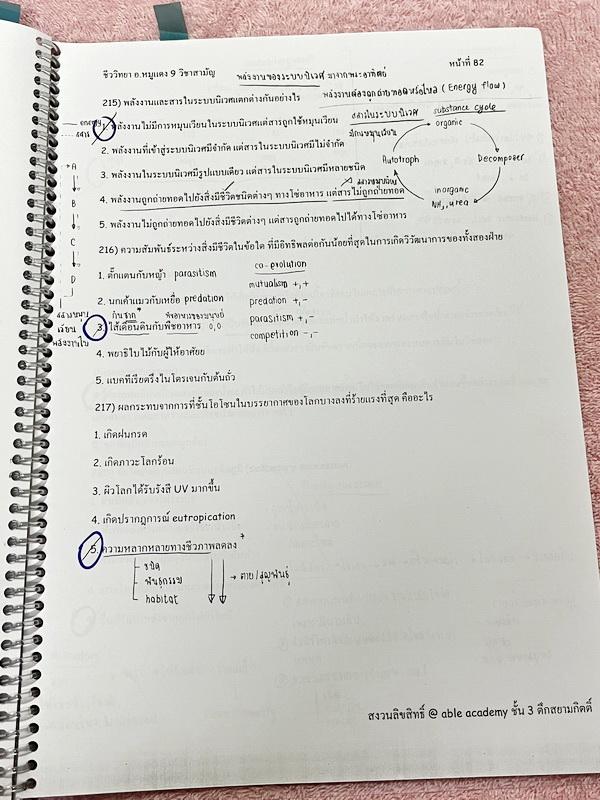 ชีววิทยา อ.หมูแดง 9 วิชาสามัญ พลังงานของระบบนิเวศ มาจากพระอาทิตย์ หน้าที่ 82
215) พลังงานและสารในระบบนิเวศแตกต่างกันอย่างไร พลังงานต้องถูกถ่ายทอดหรือไหล (Energy flow)
energy
สสาร
1. พลังงานไม่มีการหมุนเวียนในระบบนิเวศแต่สารถูกใช้หมุนเวียน สสารในระบบนิเวศ substance cycle
มีการหมุนเวียน organic
2. พลังงานที่เข้าสู่ระบบนิเวศมีจำกัด แต่สารในระบบนิเวศมีไม่จำกัด
Autotroph Decomposer
A
3. พลังงานในระบบนิเวศมีรูปแบบเดียว แต่สารในระบบนิเวศมีหลายชนิด
สสารหมุนเวียน
B
4. พลังงานถูกถ่ายทอดไปยังสิ่งมีชีวิตชนิดต่างๆ ทางโซ่อาหาร แต่สารไม่ถูกถ่ายทอด inorganic
NH₃, urea
C
5. พลังงานไม่ถูกถ่ายทอดไปยังสิ่งมีชีวิตต่างๆ แต่สารถูกถ่ายทอดไปได้ทางโซ่อาหาร
D
216) ความสัมพันธ์ระหว่างสิ่งมีชีวิตในข้อใด ที่มีอิทธิพลต่อกันน้อยที่สุดในการเกิดวิวัฒนาการของทั้งสองฝ่าย
1. ตั๊กแตนกับหญ้า parasitism
co-evolution
mutualism +,+
2. นกเค้าแมวกับเหยื่อ predation
predation +,-
กินซาก
3. ไส้เดือนดินกับพืชอาหาร 0,0
parasitism +,-
competition -,-
4. พยาธิใบไม้กับผู้ให้อาศัย
5. แบคทีเรียตรึงไนโตรเจนกับต้นถั่ว
217) ผลกระทบจากการที่ชั้นโอโซนในบรรยากาศของโลกบางลงที่ร้ายแรงที่สุด คืออะไร
1. เกิดฝนกรด
2. เกิดภาวะโลกร้อน
3. ผิวโลกได้รับรังสี UV มากขึ้น
4. เกิดปรากฎการณ์ eutropication
5. ความหลากหลายทางชีวภาพลดลง
ชนิด
พันธุกรรม → ตาย/สูญพันธุ์
habitat
สงวนลิขสิทธิ์ @ able academy ชั้น 3 ตึกสยามกิตติ์